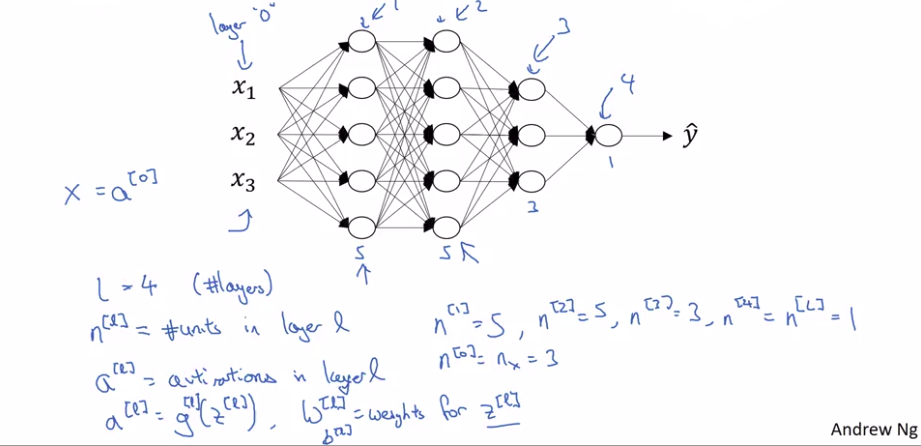 layer "0"
1
2
3
4
x₁
x₂
x₃
ŷ
1
3
5
5
X = a^[0]
L = 4 (#layers)
n^[l] = #units in layer l
n^[1] = 5, n^[2] = 5, n^[3] = 3, n^[4] = n^[L] = 1
n^[0] = n_x = 3
a^[l] = activations in layer l
a^[l] = g^[l](z^[l]), W^[l] = weights for z^[l]
b^[l]
Andrew Ng